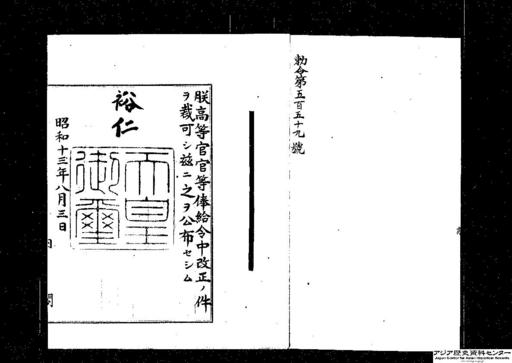 勅令第五百五十九號
朕高等官官等俸給令中改正ノ件
ヲ裁可シ茲ニ之ヲ公布セシム
裕仁
天皇
御璽
昭和十三年八月三日
アジア歴史資料センター
Japan Center for Asian Historical Records